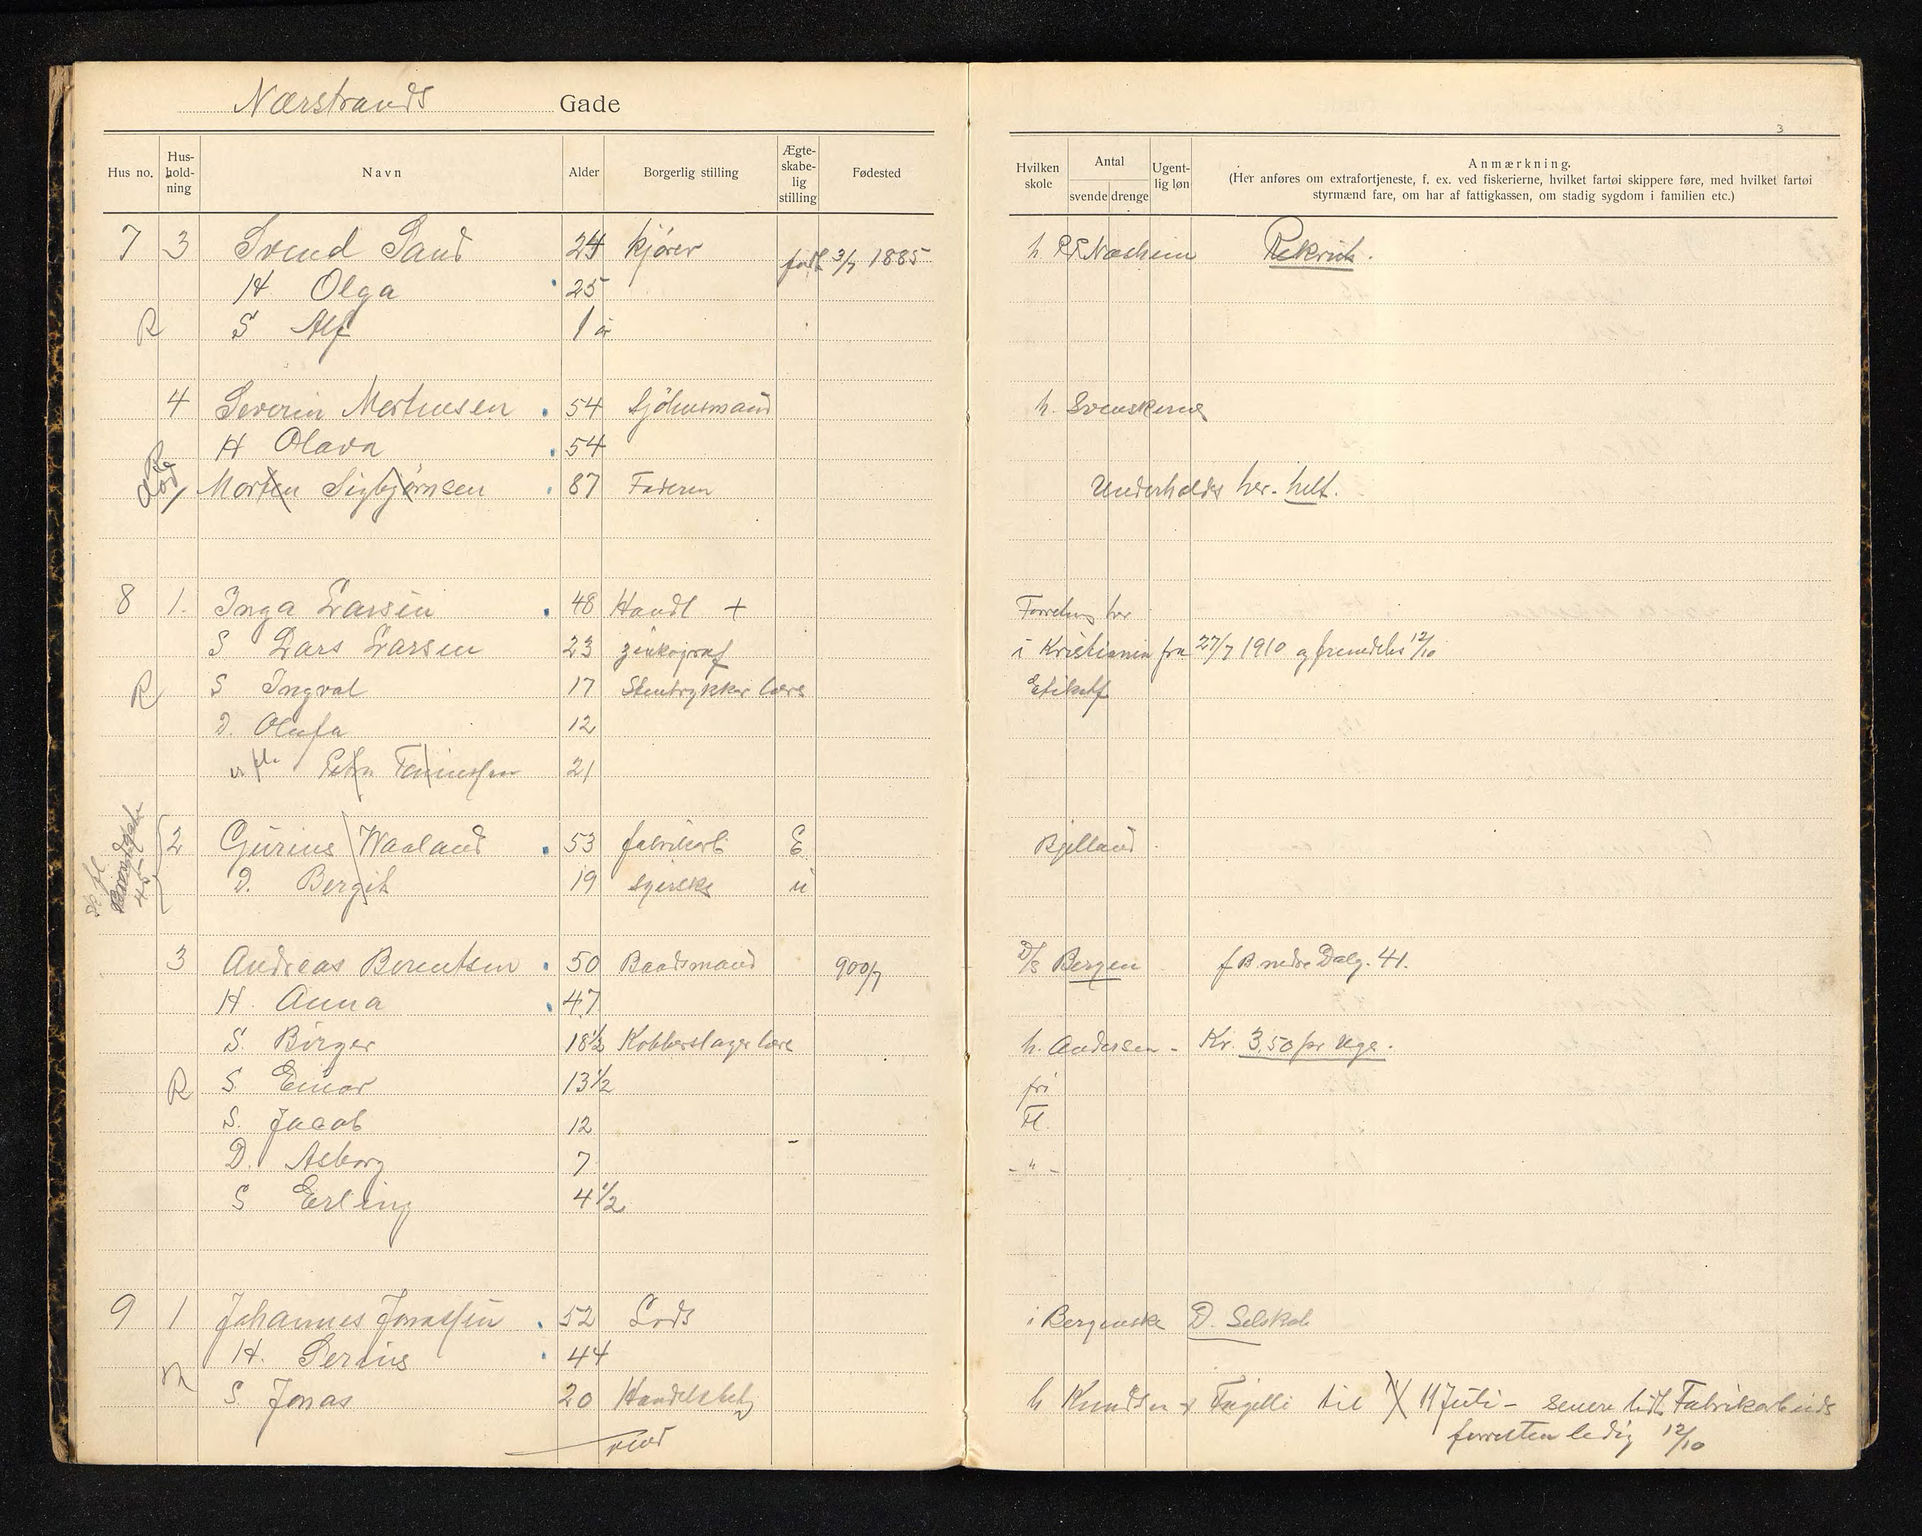 Nærstrands Gade
3
Hus no. Hus-hold-ning Navn Alder Borgerlig stilling Ægte-skabe-lig stilling Fødested Hvilken skole Antal svende drenge Ugent-lig løn Anmærkning.
(Her anføres om extrafortjeneste, f. ex. ved fiskerierne, hvilket fartøi skippere føre, med hvilket fartøi
styrmænd fare, om har af fattigkassen, om stadig sygdom i familien etc.)
7 3 Svend Sand 24 kjører født 3/7 1885 h Næsheim Rekrut.
H Olga 25
R S Alf 1 år
4 Severin Mortensen 54 Sjøhusmand h. Svenskerne
H Olava 54
død Morten Sigbjørnsen 87 Faderen Underholdes her. helt.
8 1. Inga Larsen 48 Handl + Forretning her
S Lars Larsen 23 zinkograf i Kristiania fra 27/7 1910 og fremdeles 12/10
R S Ingval 17 Stentrykker lære Etikettf
D. Olufa 12
Petra 21
2 Gurius Waaland 53 fabrikarb E Bjelland
45 D. Bergit 19 syerske u
3 Andreas Berentsen 50 Baadsmand 900/7 D/S Bergen f B nedre Dalg. 41.
H. Anna 47
S. Birger 18½ Kobberslager lære h. Andersen - Kr. 3,50 pr Uge.
R S. Einar 13½ fri
S. Jacob 12 Fl.
D. Asborg 7 - " -
S Erling 4½
9 1 Johannes Jonassen 52 Lods i Bergenske D. Selskab
H. Serine 44
S. Jonas 20 Handelsbetj h Knudsen til 11 Juli - senere Fabrikarbeids
vend forretten ledig 12/10